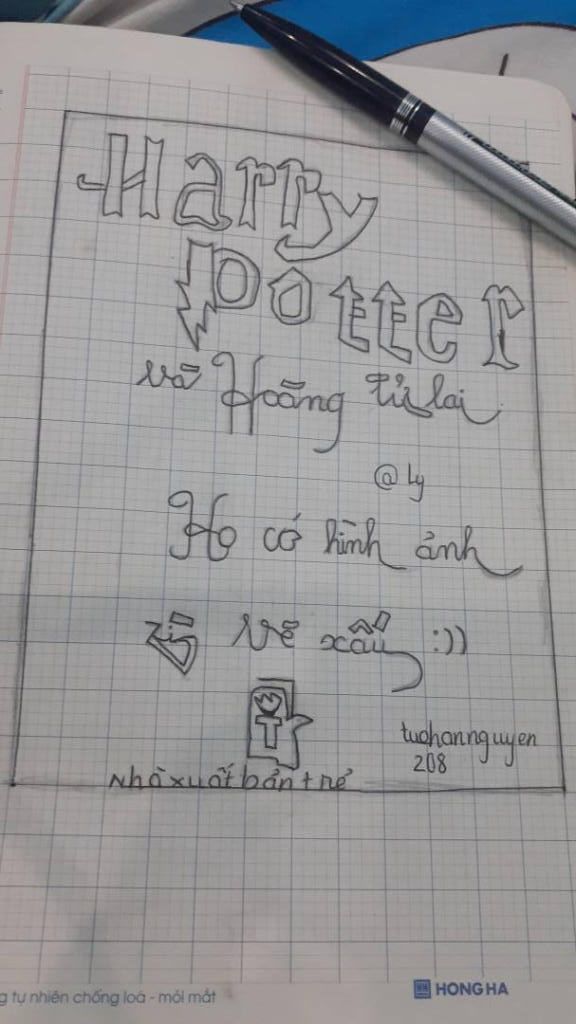 Harry
Potter
và Hoàng tử lai
@ly
Họ có hình ảnh
vẽ xấu :))
T
tuohannguyen
208
Nhà xuất bản trẻ
g tự nhiên chống loá - mỏi mắt
HONG HA